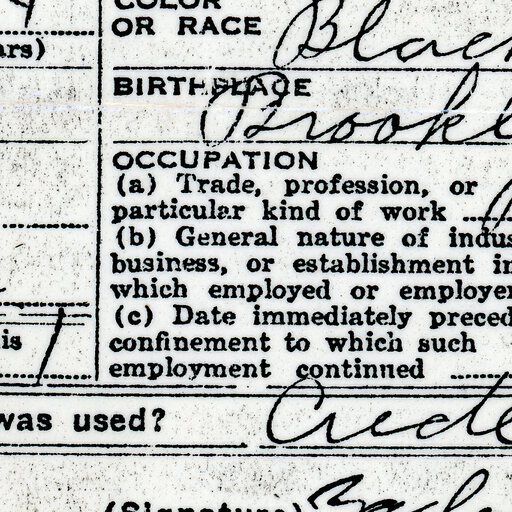 COLOR
OR RACE Black
ars)
BIRTHPLACE
Brookl
OCCUPATION
(a) Trade, profession, or
particular kind of work
(b) General nature of indus
business, or establishment in
which employed or employer
(c) Date immediately preced
is 1 confinement to which such
employment continued
was used? Crede
(Signature)